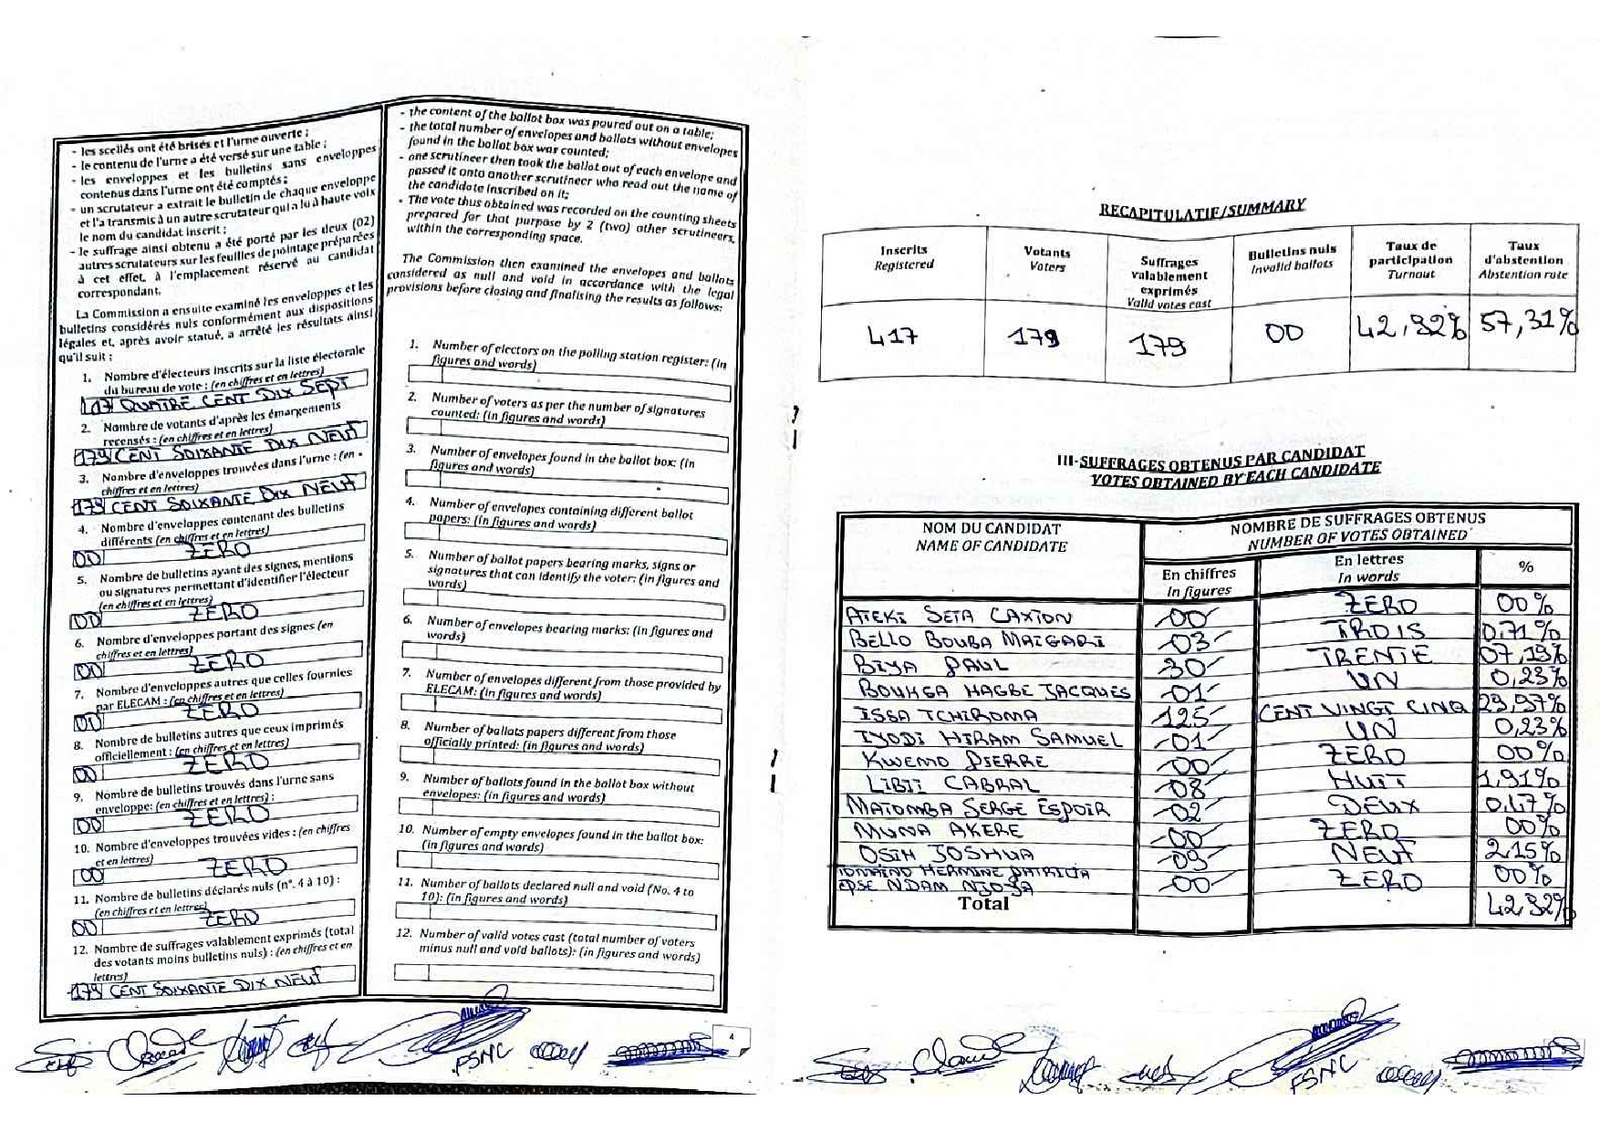 - les scellés ont été brisés et l'urne ouverte ;
- le contenu de l'urne a été versé sur une table ;
- les enveloppes et les bulletins sans enveloppes
contenus dans l'urne ont été comptés ;
- un scrutateur a extrait le bulletin de chaque enveloppe
et l'a transmis à un autre scrutateur qui a lu à haute voix
le nom du candidat inscrit ;
- le suffrage ainsi obtenu a été porté par les deux (02)
autres scrutateurs sur les feuilles de pointage préparées
à cet effet, à l'emplacement réservé au candidat
correspondant.
La Commission a ensuite examiné les enveloppes et les
bulletins considérés nuls conformément aux dispositions
légales et, après avoir statué, a arrêté les résultats ainsi
qu'il suit :
1. Nombre d'électeurs inscrits sur la liste électorale
du bureau de vote : (en chiffres et en lettres)
417 QUATRE CENT DIX SEPT
2. Nombre de votants d'après les émargements
recensés : (en chiffres et en lettres)
179 CENT SOIXANTE DIX NEUF
3. Nombre d'enveloppes trouvées dans l'urne : (en
chiffres et en lettres)
179 CENT SOIXANTE DIX NEUF
4. Nombre d'enveloppes contenant des bulletins
différents (en chiffres et en lettres)
00 ZERO
5. Nombre de bulletins ayant des signes, mentions
ou signatures permettant d'identifier l'électeur
(en chiffres et en lettres)
00 ZERO
6. Nombre d'enveloppes portant des signes (en
chiffres et en lettres)
00 ZERO
7. Nombre d'enveloppes autres que celles fournies
par ELECAM : (en chiffres et en lettres)
00 ZERO
8. Nombre de bulletins autres que ceux imprimés
officiellement : (en chiffres et en lettres)
00 ZERO
9. Nombre de bulletins trouvés dans l'urne sans
enveloppe: (en chiffres et en lettres) :
00 ZERO
10. Nombre d'enveloppes trouvées vides : (en chiffres
et en lettres)
00 ZERO
11. Nombre de bulletins déclarés nuls (n°. 4 à 10) :
(en chiffres et en lettres)
00 ZERO
12. Nombre de suffrages valablement exprimés (total
des votants moins bulletins nuls) : (en chiffres et en
lettres)
179 CENT SOIXANTE DIX NEUF
- the content of the ballot box was poured out on a table;
- the total number of envelopes and ballots without envelopes
found in the ballot box was counted;
- one scrutineer then took the ballot out of each envelope and
passed it onto another scrutineer who read out the name of
the candidate inscribed on it;
- The vote thus obtained was recorded on the counting sheets
prepared for that purpose by 2 (two) other scrutineers,
within the corresponding space.
The Commission then examined the envelopes and ballots
considered as null and void in accordance with the legal
provisions before closing and finalising the results as follows:
1. Number of electors on the polling station register: (in
figures and words)
2. Number of voters as per the number of signatures
counted: (in figures and words)
3. Number of envelopes found in the ballot box: (in
figures and words)
4. Number of envelopes containing different ballot
papers: (in figures and words)
5. Number of ballot papers bearing marks, signs or
signatures that can identify the voter: (in figures and
words)
6. Number of envelopes bearing marks: (in figures and
words)
7. Number of envelopes different from those provided by
ELECAM: (in figures and words)
8. Number of ballots papers different from those
officially printed: (in figures and words)
9. Number of ballots found in the ballot box without
envelopes: (in figures and words)
10. Number of empty envelopes found in the ballot box:
(in figures and words)
11. Number of ballots declared null and void (No. 4 to
10): (in figures and words)
12. Number of valid votes cast (total number of voters
minus null and void ballots): (in figures and words)
FSNC
4
RECAPITULATIF/SUMMARY
Inscrits Registered
Votants Voters
Suffrages valablement exprimés Valid votes cast
Bulletins nuls Invalid ballots
Taux de participation Turnout
Taux d'abstention Abstention rate
417 179 179 00 42,92% 57,31%
III-SUFFRAGES OBTENUS PAR CANDIDAT
VOTES OBTAINED BY EACH CANDIDATE
NOM DU CANDIDAT
NAME OF CANDIDATE
NOMBRE DE SUFFRAGES OBTENUS
NUMBER OF VOTES OBTAINED
En chiffres In figures
En lettres In words
%
ATEKI SETA CAXTON 00 ZERO 00%
BELLO BOUBA MAIGARI 03 TROIS 0,71%
BIYA PAUL 30 TRENTE 07,19%
BOUHGA HAGBE JACQUES 01 UN 0,23%
ISSA TCHIROMA 125 CENT VINGT CINQ 29,97%
IYODI HIRAM SAMUEL 01 UN 0,23%
KWEMO PIERRE 00 ZERO 00%
LIBII CABRAL 08 HUIT 1,91%
MATOMBA SERGE ESPOIR 02 DEUX 0,47%
MUNA AKERE 00 ZERO 00%
OSIH JOSHUA 09 NEUF 2,15%
TOMAINO HERMINE PATRICIA
EPSE NDAM NJOYA 00 ZERO 00%
Total 42,92%
FSNC